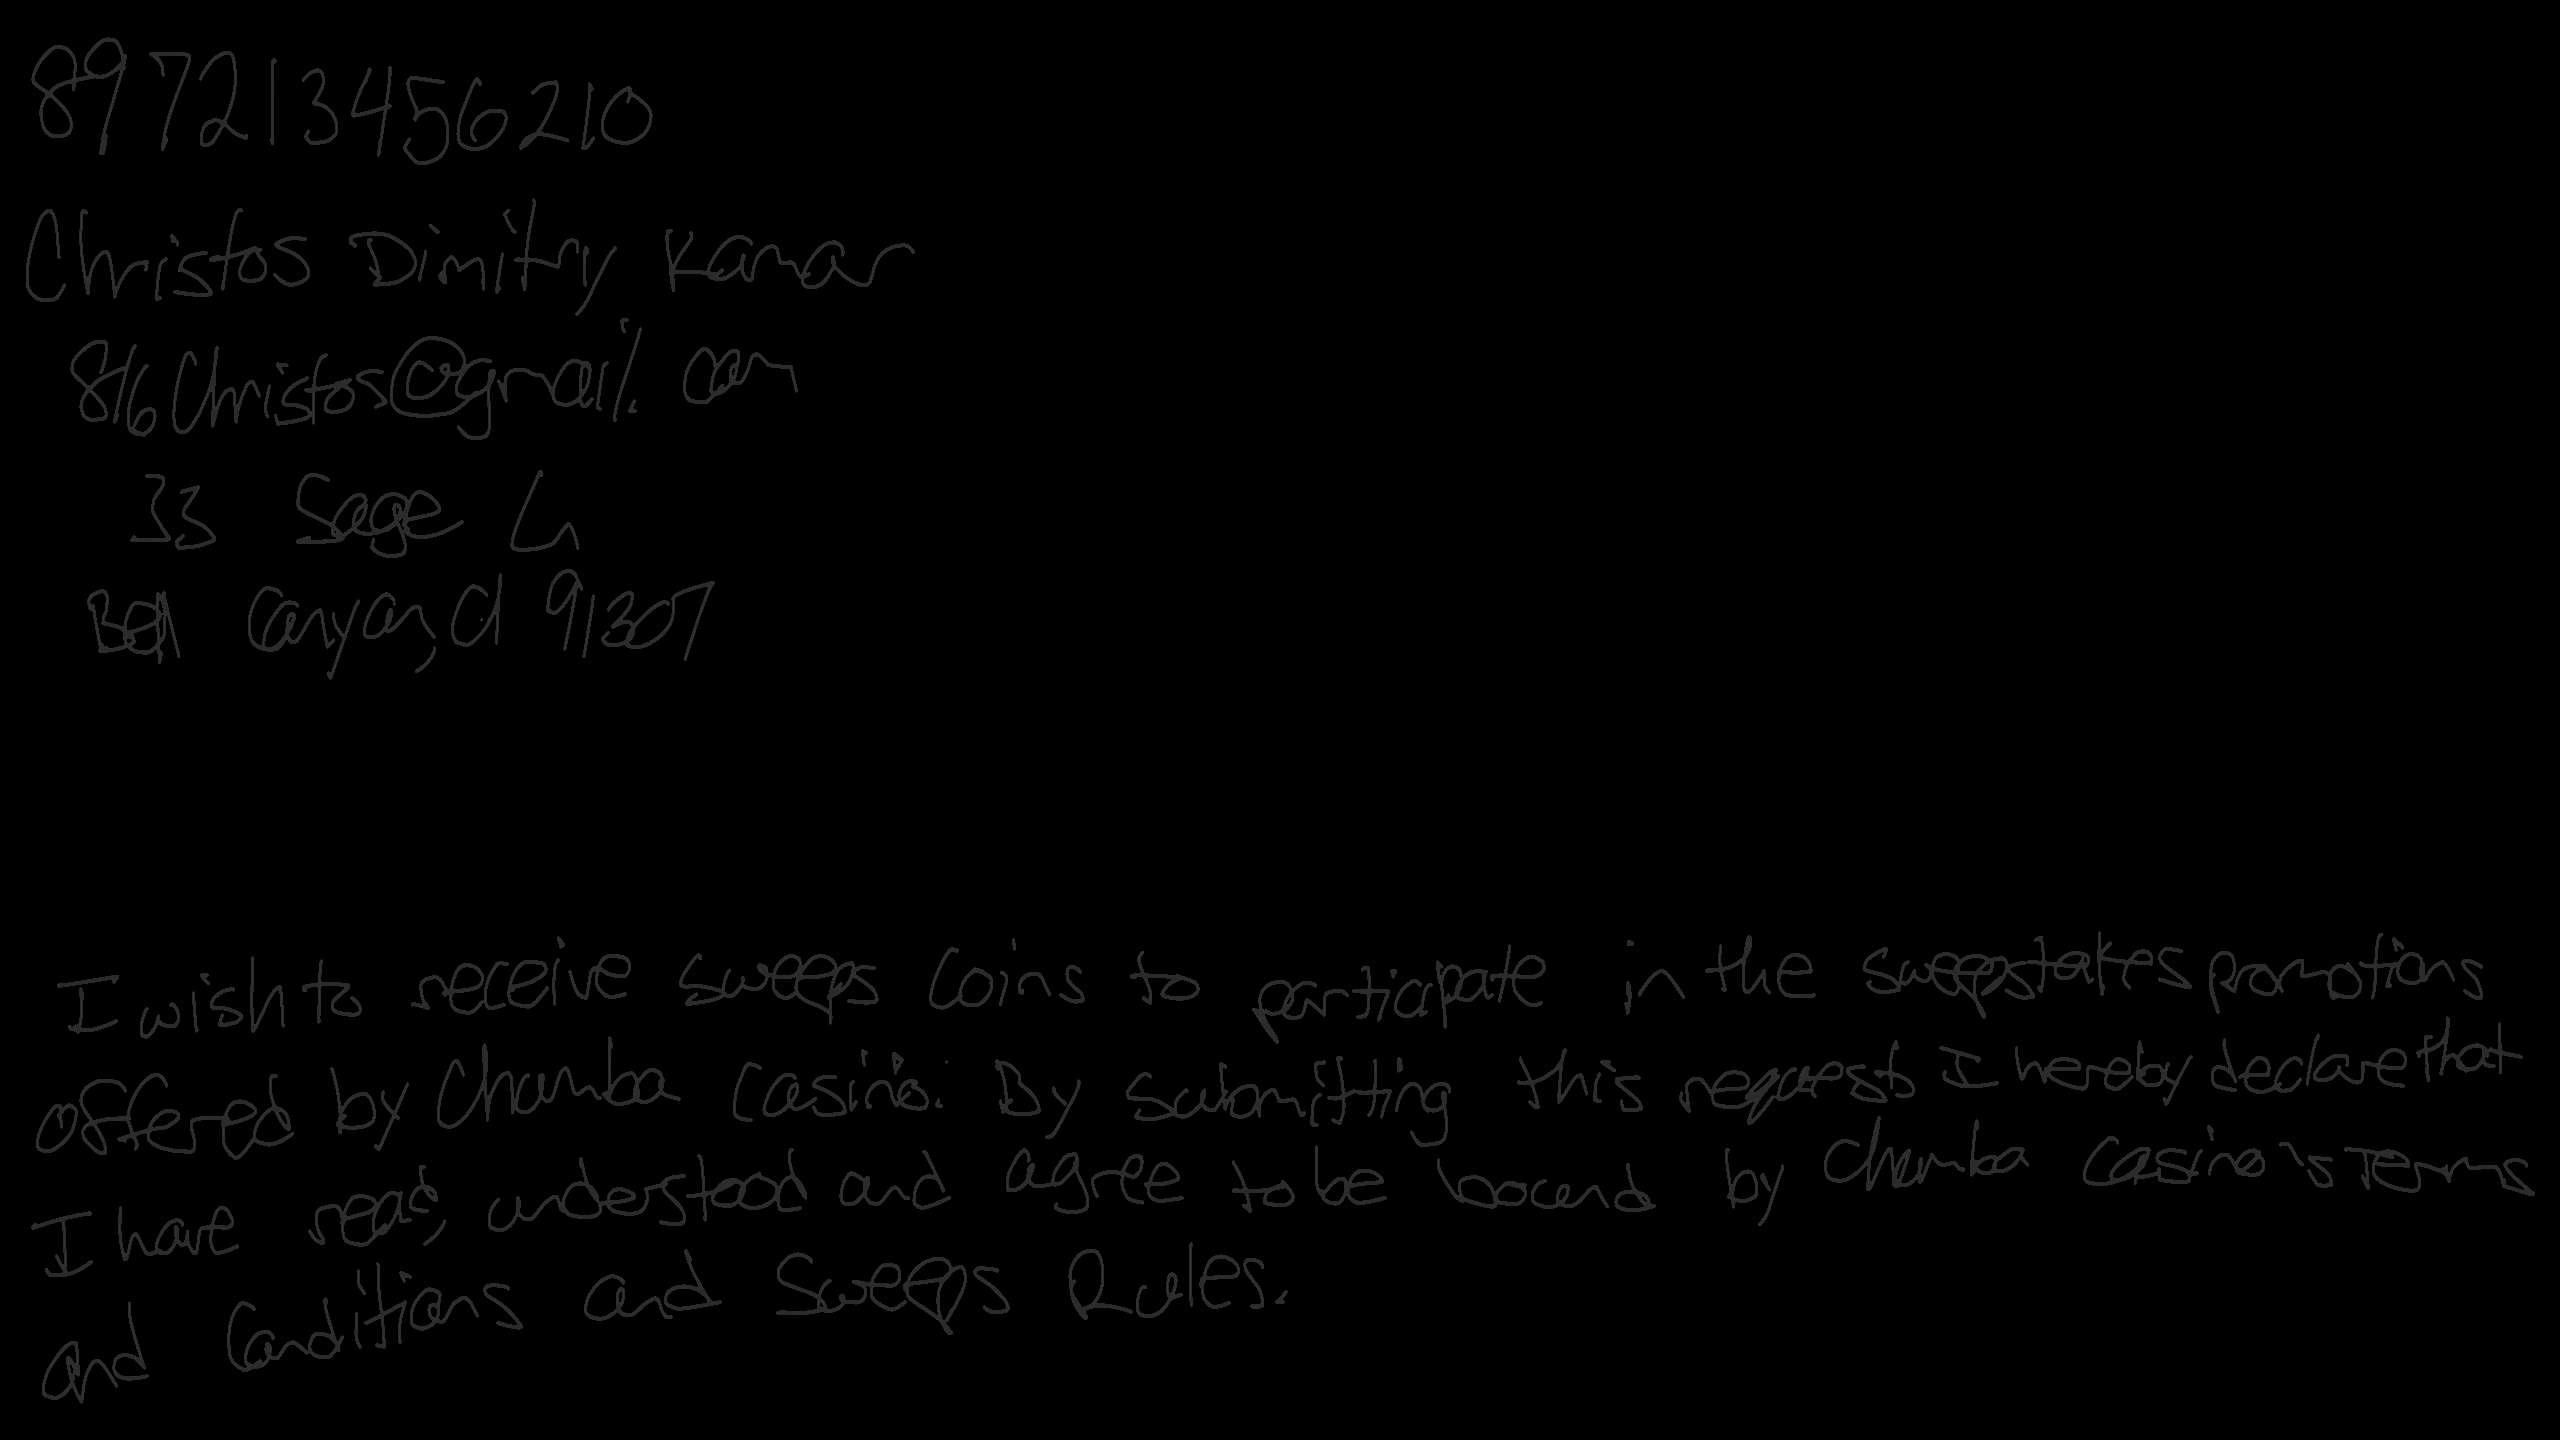 897213456210
Christos Dimitry Kamar
816Christos@gmail.com
33 Sage Ln
Bell Canyon, CA 91307
I wish to receive sweeps Coins to participate in the sweepstakes promotions
offered by Chumba Casino. By submitting this request I hereby declare that
I have read, understood and agree to be bound by Chumba Casino's Terms
and Conditions and Sweeps Rules.